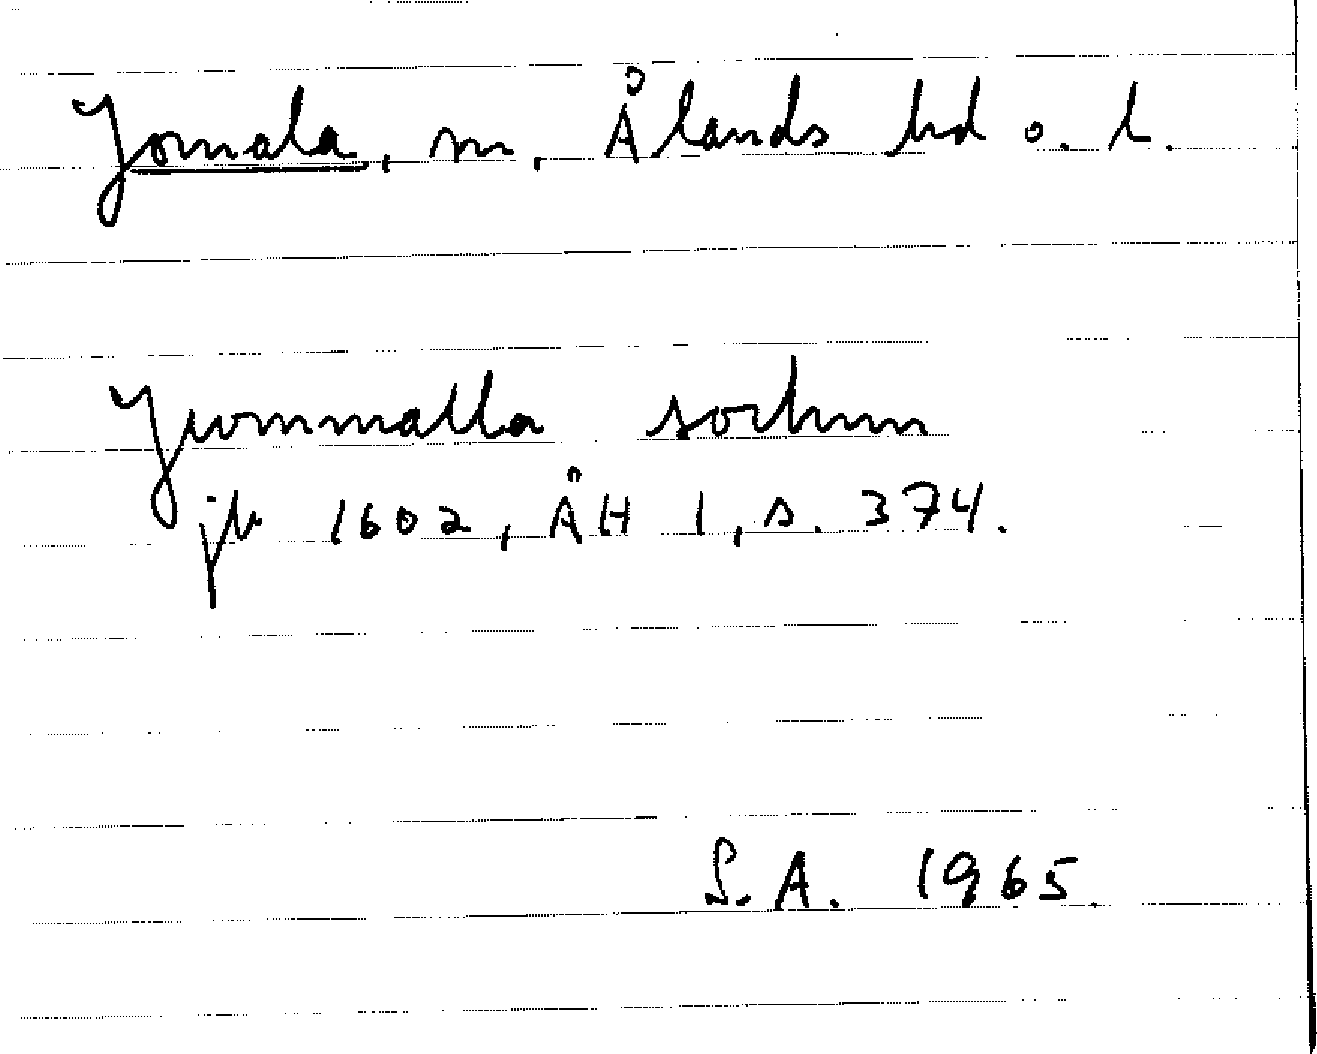 Jomala, sn, Ålands hd o. l.
Jwommalla sochnn
jb 1602, ÅH 1, s. 374.
S.A. 1965.